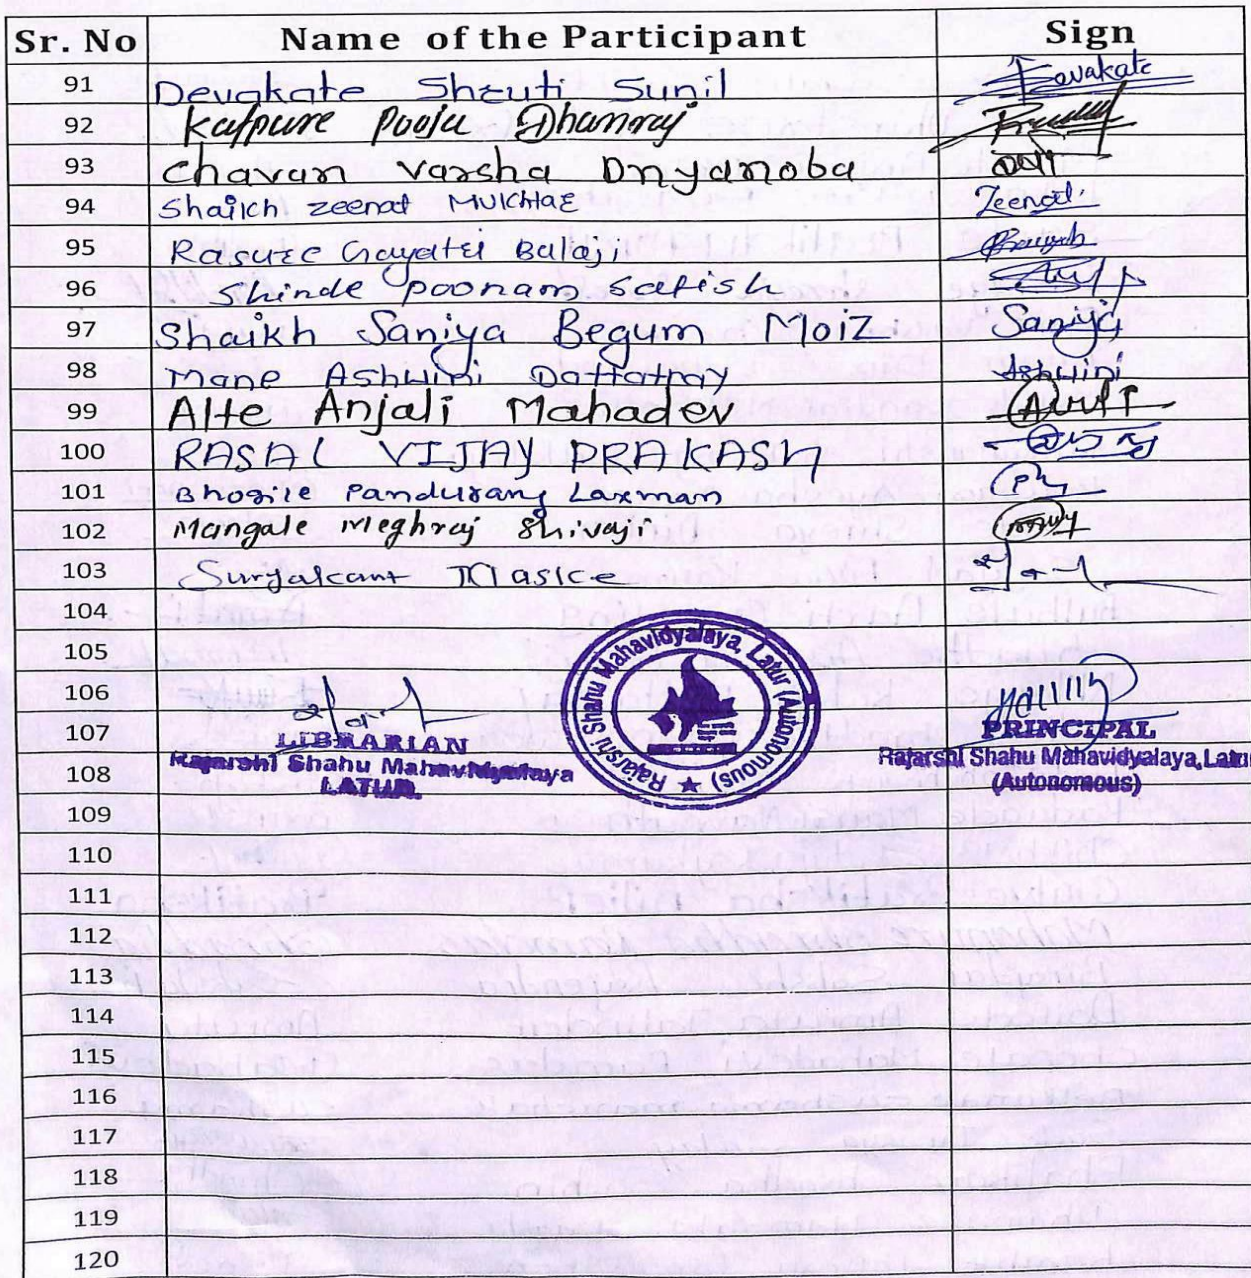 Sr. No Name of the Participant Sign
91 Devakate Shruti Sunil Devakate
92 Kalpure Pooja Dhanraj
93 Chavan Varsha Dnyanoba
94 Shaikh Zeenat Mukhtar Zeenat
95 Rasure Gayatri Balaji
96 Shinde Poonam Satish
97 Shaikh Saniya Begum Moiz Saniya
98 Mane Ashwini Dattatray Ashwini
99 Alte Anjali Mahadev
100 RASAL VIJAY PRAKASH
101 Bhogile Pandurang Laxman
102 Mangale Meghraj Shivaji
103 Suryakant Maske
104
105
106
107
108
LIBRARIAN
Rajarshi Shahu Mahavidyalaya
LATUR.
Rajarshi Shahu Mahavidyalaya, Latur (Autonomous)
PRINCIPAL
Rajarshi Shahu Mahavidyalaya, Latur
(Autonomous)
109
110
111
112
113
114
115
116
117
118
119
120